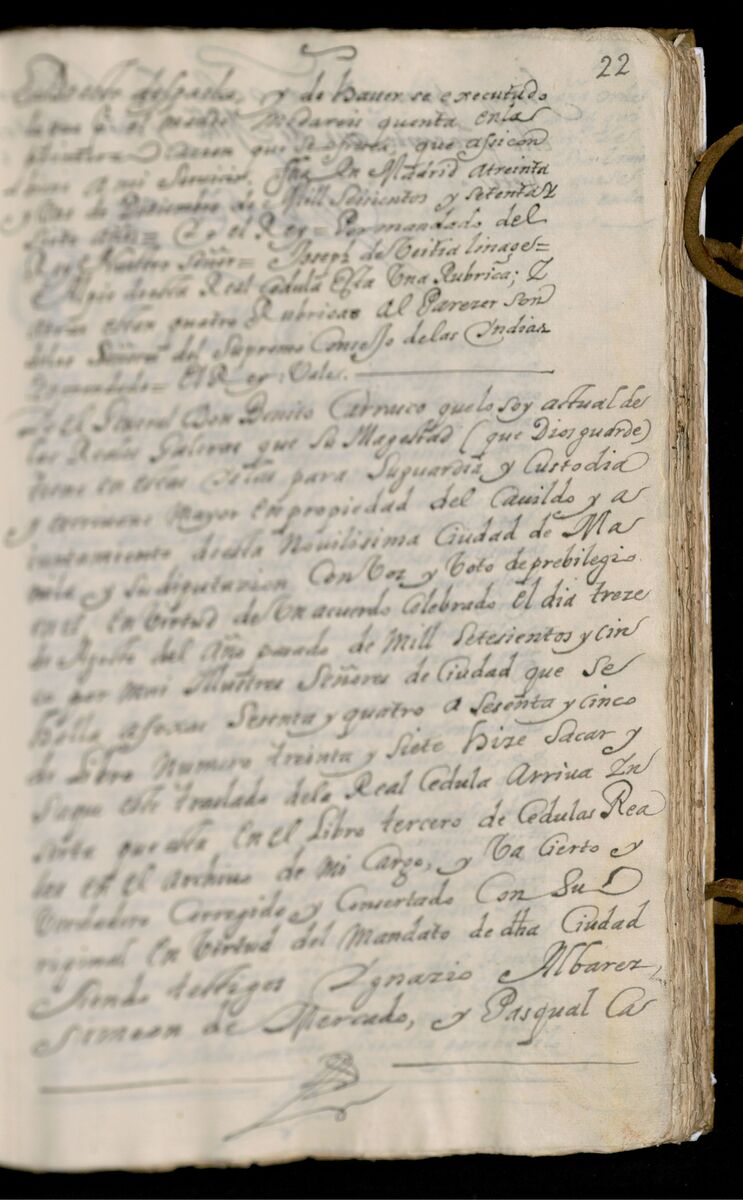 22
despacho, y de haverse executado
me dareis quenta en la
primera ocacion que se ofresca, que assi con
biene a mi Servicio, fha En Madrid a treinta
y uno de Diciembre de Mill Seisientos y Setenta y
Siete años = Yo el Rey = Por mandado del
Rey Nuestro Señor = Joseph de Veitia linage =
Al pie de esta Real Cedula Esta Una Rubrica; Y
atras estan quatro Rubricas Al Parezer son
delos Señores del Supremo Consejo de las Yndias
Enmendado = El Rey: Vale.
Yo El General Don Benito Carrasco que lo soy actual de
las Reales Galeras que Su Magestad (que Dios guarde)
tiene en estas Yslas para Su guardia y Custodia
y escrivano Mayor En propiedad del Cavildo y a
iuntamiento de esta Novilisima Ciudad de Ma
nila y su diputazion Con Voz y Voto de prebilegio
en el, En Virtud de Un acuerdo Celebrado El dia treze
de Agosto del Año pasado de Mill Setesientos y cin
co por mui Illustres Señores de Ciudad que se
halla a foxas Sesenta y quatro a Sesenta y cinco
de Libro Numero treinta y Siete hize Sacar y
Saque este traslado dela Real Cedula Arriva Yn
serta que esta En el Libro tercero de Cedulas Rea
les en el Archivo de mi Cargo, y Va Cierto y
Verdadero Corregido y Consertado Con Su O
riginal En Virtud del Mandato de dha Ciudad
Siendo testigos Ygnazio Albarez,
Simeon de Mercado, y Pasqual Ca